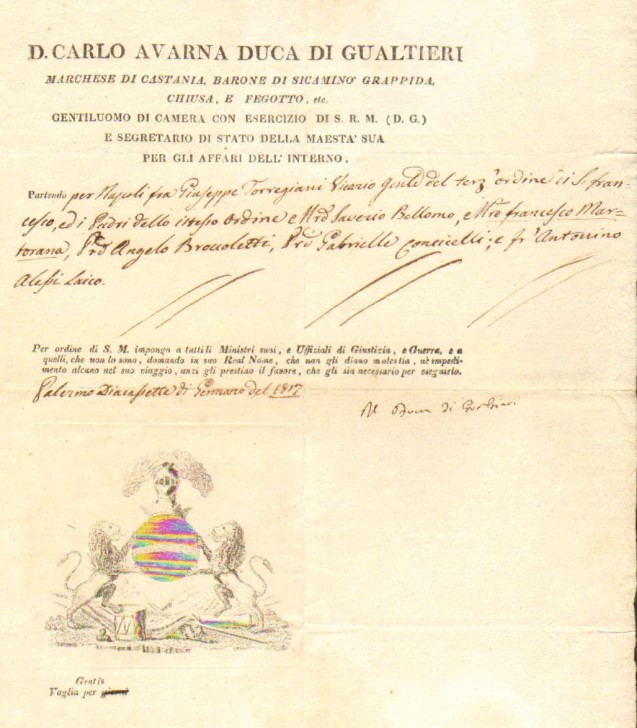 D. CARLO AVARNA DUCA DI GUALTIERI
MARCHESE DI CASTANIA, BARONE DI SICAMINO' GRAPPIDA,
CHIUSA, E FEGOTTO, etc.
GENTILUOMO DI CAMERA CON ESERCIZIO DI S. R. M. (D. G.)
E SEGRETARIO DI STATO DELLA MAESTA' SUA
PER GLI AFFARI DELL' INTERNO.
Partendo per Napoli fra Giuseppe Torregiani Vicario Gñle del terz' ordine di S. fran-
cesco, ed i Padri dello stesso Ordine e Mro Saverio Bellomo, e Mro francesco Mar-
torana, Prd Angelo Broccoletti, Prd Gabrielle Concicelli; e fr' Antonino
Alessi Laico.
Per ordine di S. M. impongo a tutti li Ministri suoi, e Uffiziali di Giustizia, e Guerra, e a
quelli, che non lo sono, domando in suo Real Nome, che non gli diano molestia, nè impedi-
mento alcuno nel suo viaggio, anzi gli prestino il favore, che gli sia necessario per eseguirlo.
Palermo Diacassette di Gennaro del 1817
Il Duca di Gualtieri
Gratis
Vaglia per giorni